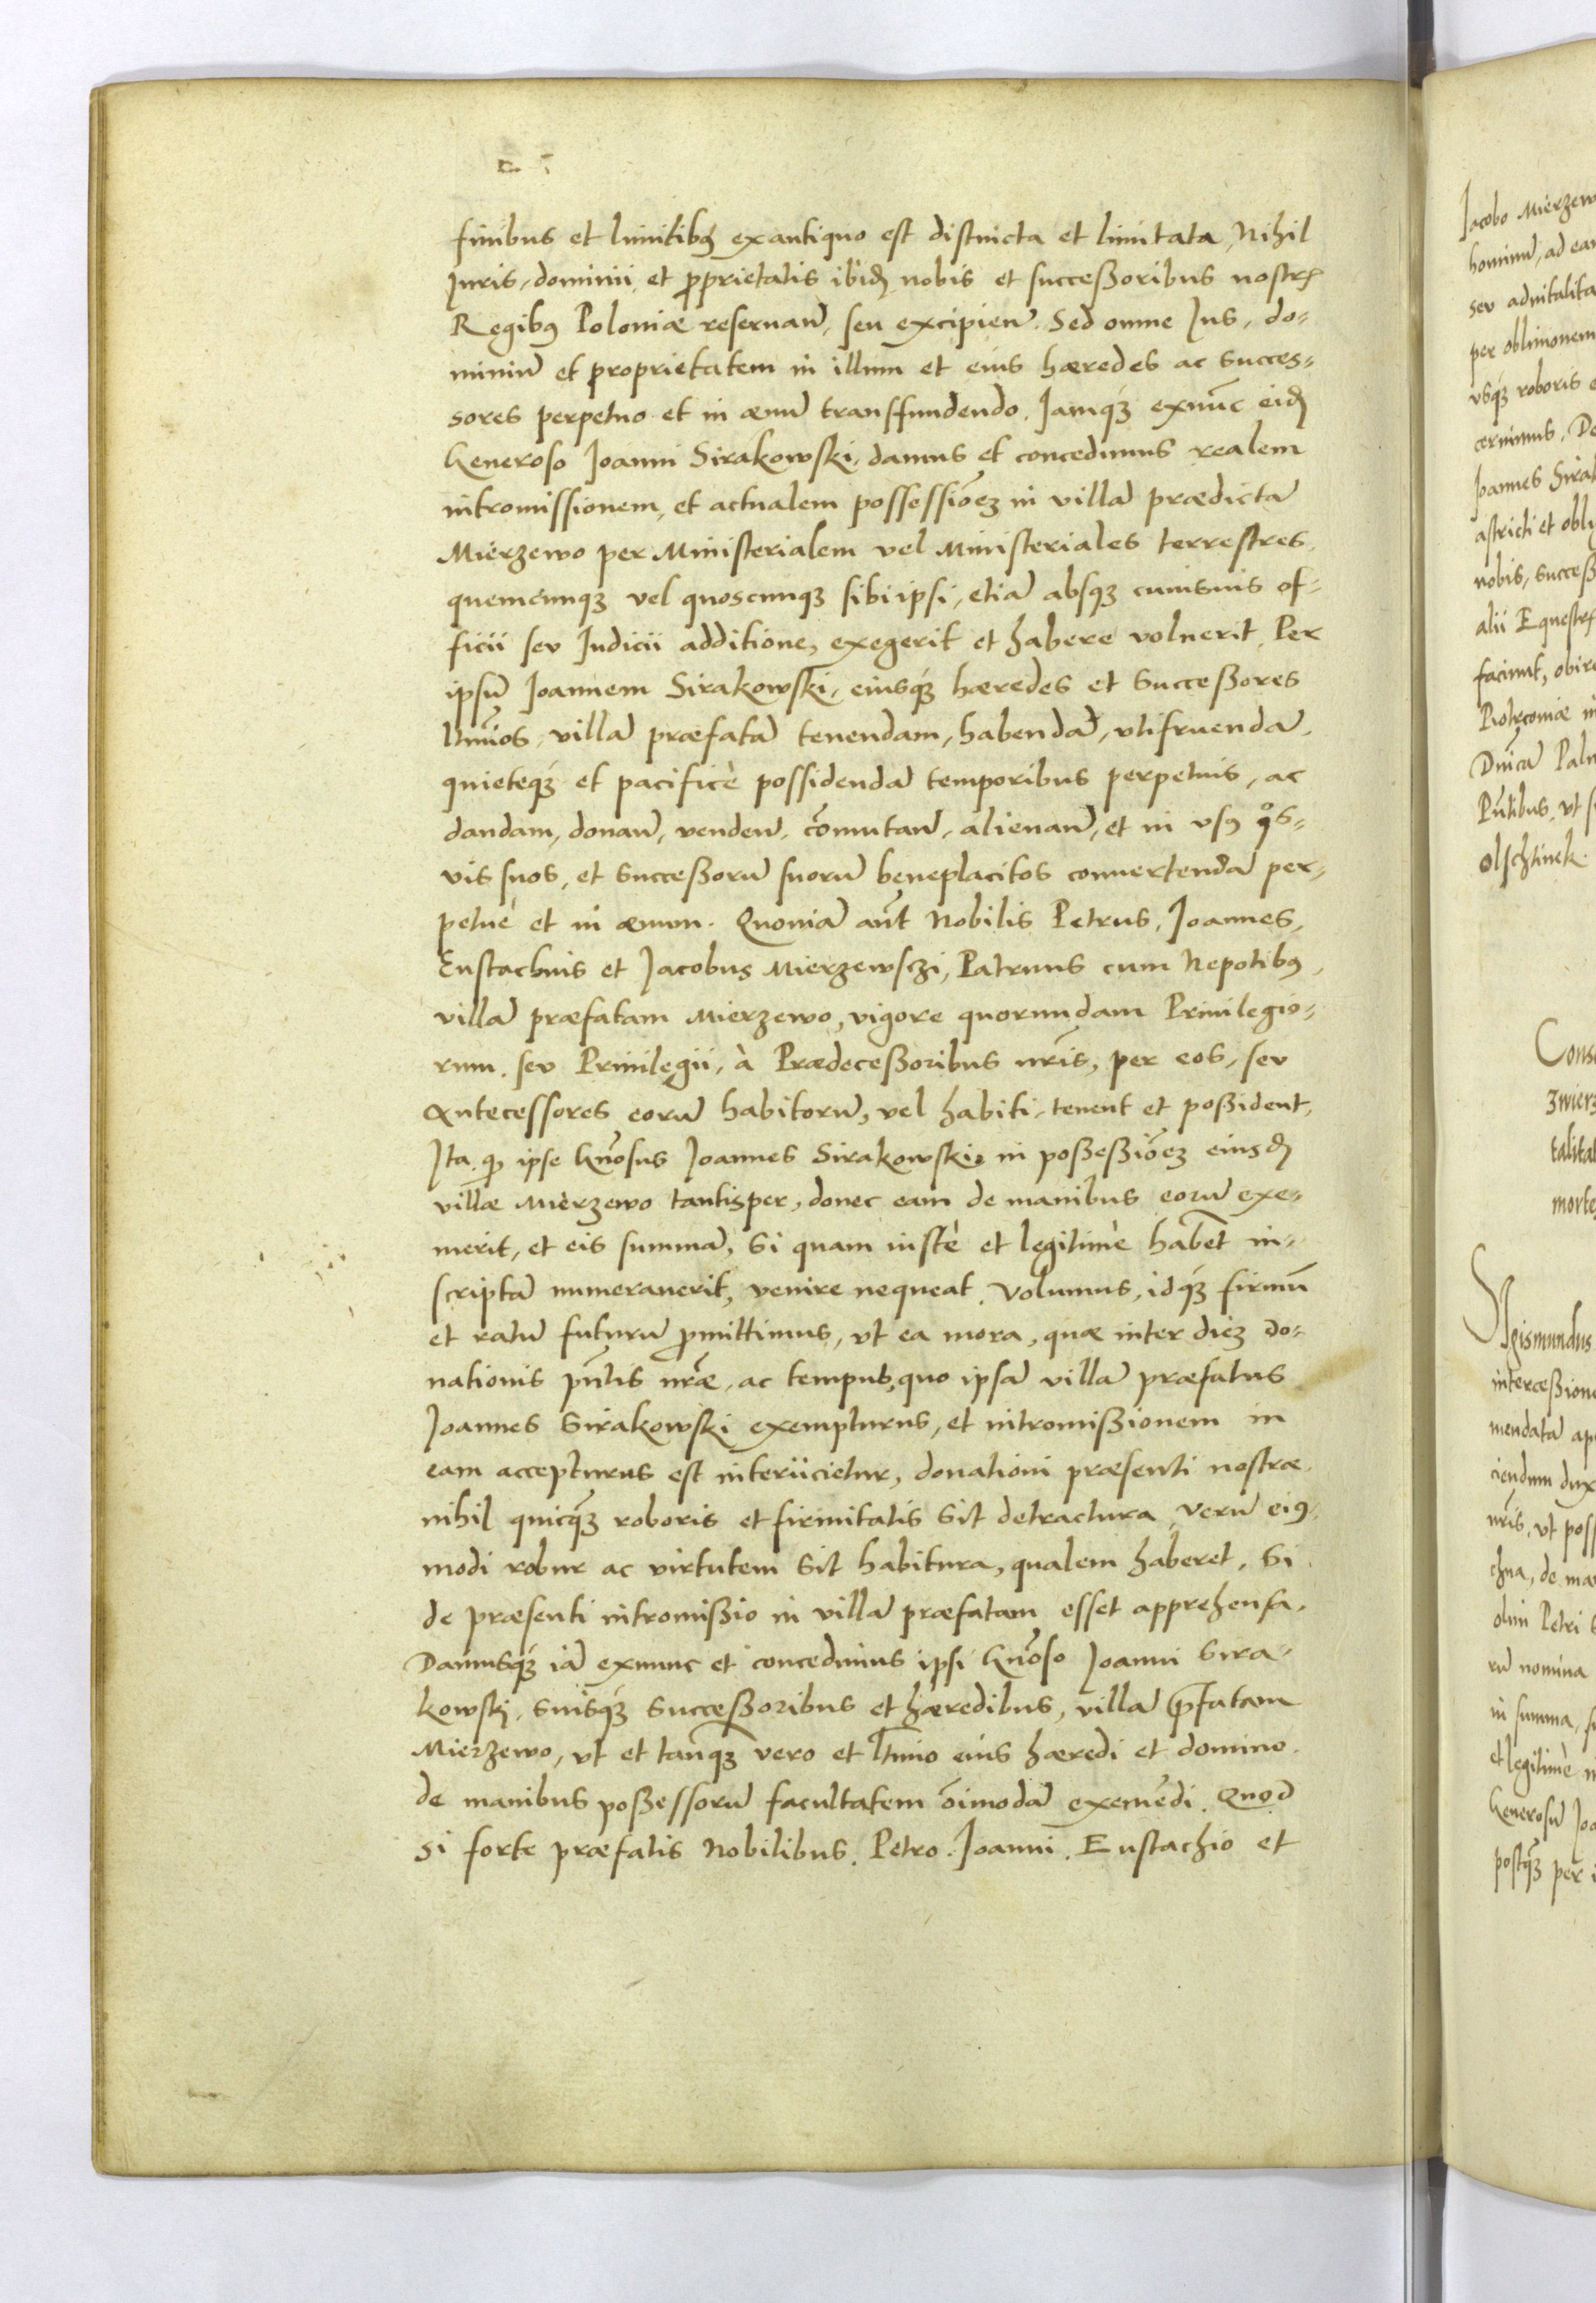 finibus et limitibꝯ ex antiquo est distincta et limitata, Nihil
Juris, dominii, et ꝓprietatis ibidē nobis et succeßoribus nostrꝭ
Regibꝯ Poloniæ reseruan̄, seu excipien̄. Sed omne Ius, do=
miniū et proprietatem in illum et eius hæredes ac succes=
sores perpetuo et in æuū transffundendo. Jamqꝫ exnūc eidē
Generoso Joanni Sirakowski, damus et concedimus realem
intromissionem, et actualem possessiōeꝫ in villā prædictā
Mierzewo per Ministerialem vel Ministeriales terrestres,
quemcunqꝫ vel quoscunqꝫ sibiipsi, etiā absqꝫ cuiusuis of=
ficii seu Judicii additione, exegerit et habere voluerit. Per
ipsū Joannem Sirakowski, eiusqꝫ hæredes et Succeßores
ltīmos, villā præfatā tenendam, habendā, vtifruendā,
quieteqꝫ et pacificè possidendā temporibus perpetuis, ac
dandam, donan̄, venden̄, cōmutan̄, alienan̄, et in vsꝯ qͦs=
vis suos, et Succeßorū suorū beneplacitos conuertendā per=
petuè et in æuum. Quoniā aūt Nobilis Petrus, Joannes,
Eustachius et Jacobus Mierzewsczi, Patruus cum Nepotibꝯ,
villā præfatam Mierzewo, vigore quorundam Priuilegio=
rum, seu Priuilegii, à Prædeceßoribus nr̄is, per eos, seu
Antecessores eorū habitorū, vel habiti, tenent et poßident,
Ita ꝙ ipse Gn̄osus Joannes Sirakowski in poßeßiōeꝫ eiusdē
villæ Mierzewo tantisper, donec eam de manibus eorū exe=
merit, et eis summā, si quam iustè et legitimè habēt in=
scriptā numerauerit, venire nequeat. Volumus, idqꝫ firmū
et ratū futurū ꝓmittimus, vt ea mora, quæ inter dieꝫ do=
nationis pn̄tis nr̄æ, ac tempus, quo ipsā villā præfatus
Joannes Sirakowski exempturus, et intromißionem in
eam accepturus est interiicietur, donationi præsenti nostræ,
nihil quicqꝫ roboris et firmitatis sit detractura, verū eiꝯ=
modi robur ac virtutem sit habitura, qualem haberet, si
de præsenti intromißio in villā præfatam esset apprehensa.
Damusqꝫ iā exnunc et concedimus ipsi Gn̄oso Joanni Sira=
kowski, suisqꝫ Succeßoribus et hæredibus, villā p̄fatam
Mierzewo, vt et tanqꝫ vero et ltīmo eius hæredi et domino,
de manibus poßessorū facultatem ōimodā exemēdi. Quod
si forte præfatis Nobilibus, Petro, Joanni, Eustachio et
Jacobo Mierzew
hominū, ad ean
seu aduitalita
per obli
vsqꝫ roboris e
cernimus. De
Joannes Sirak
astricti et obli
nobis, succeß
alii Equestrꝭ
faciunt, obire
Piotrcouiæ in
Dn̄ica Palm
Pn̄tibus, vt s
Olschtinek.
Conse
Zwierz
talitat
morte
Sigismundus
interceßione
mendatā ap
ciendum dux
nr̄is, vt poss
chna, de ma
olim Petri S
rū nomina
in summa, s
et legitimè n
Generosū Joa
postqꝫ per i